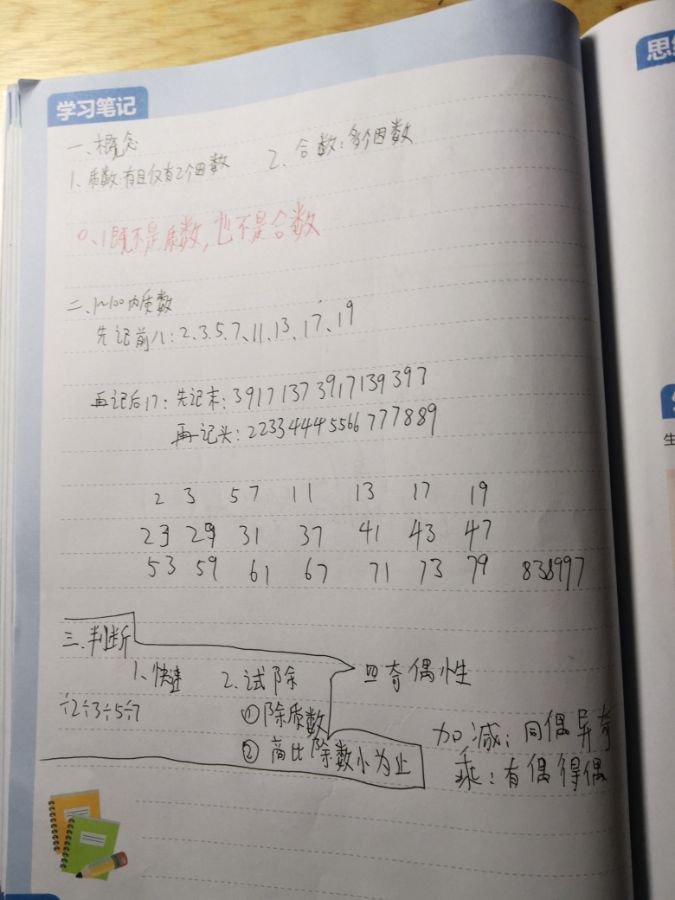 学习笔记
思
一、概念
1、质数:有且仅有2个因数 2、合数:多个因数
0、1既不是质数,也不是合数
二、1~100内质数
先记前八:2、3、5、7、11、13、17、19
再记后17:先记末:39171373917139397
再记头:22334445566777889
生
2 3 5 7 11 13 17 19
23 29 31 37 41 43 47
53 59 61 67 71 73 79 838997
三、判断
1、快速 2、试除
÷2÷3÷5÷7
①除质数
②商比除数小为止
四奇偶性
加减:同偶异奇
乘:有偶得偶